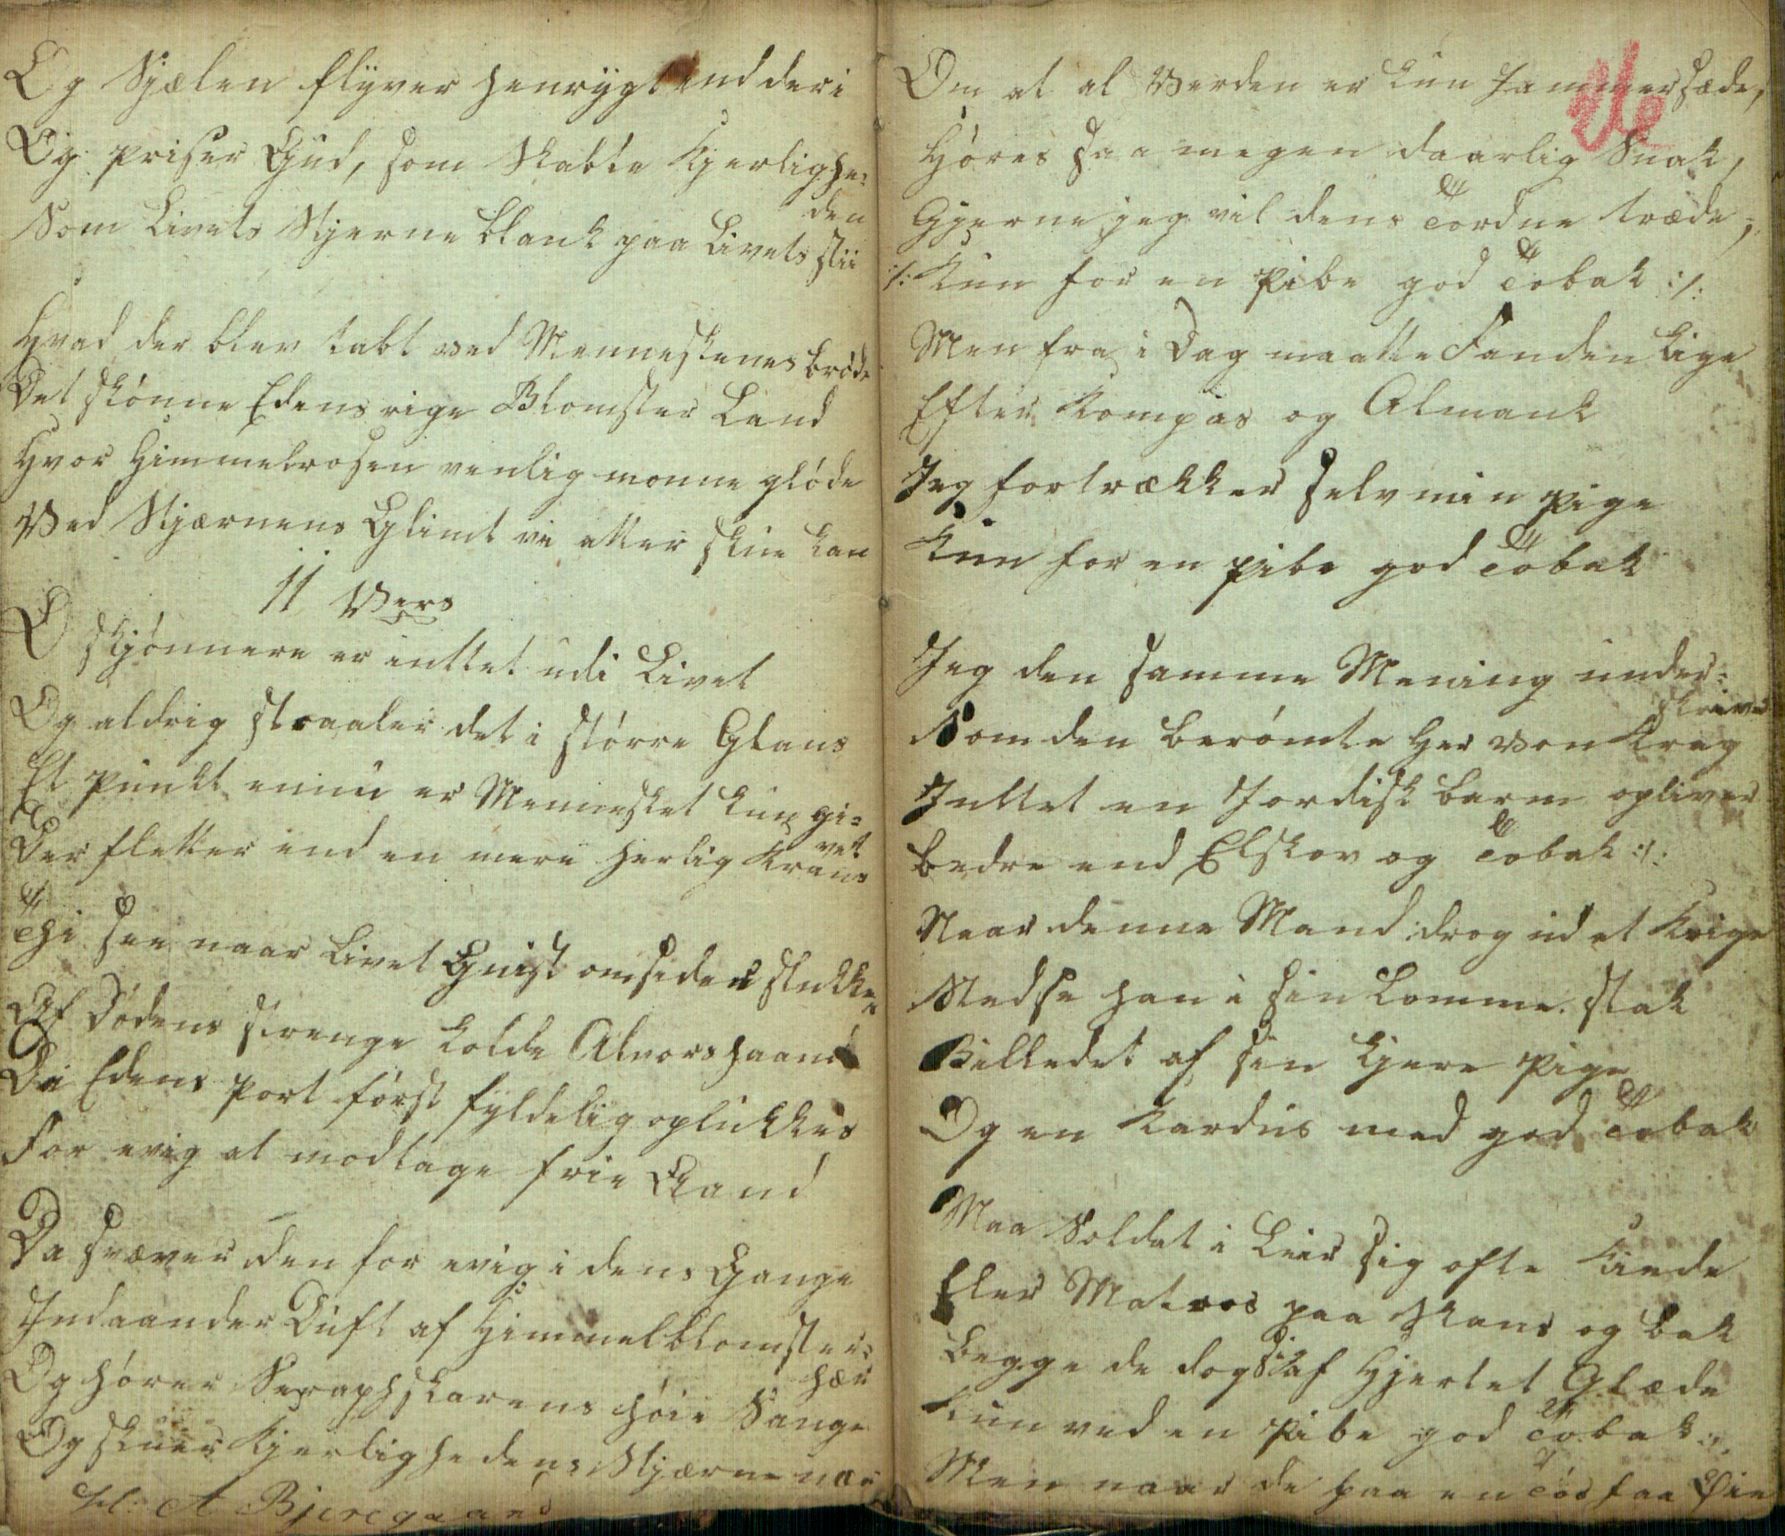 Og Sjælen flÿver henrÿgt ind deri
Og priser Gud, som Skabte Kjerlighe=
den
Som Livets Stjerne blank paa Livets stii
Hvad der blev tabt ved Menneskenes brøde
Det skønne Edens rige Blomster Land
Hvor Himmelrosen venlig monne gløde
Ved Stjærnens Glimt vi atter skue kan
11 Vers
O skjønnere er inttet udi Livet
Og aldrig straaler det i større Glans
Et punkt ennu er Mennesket kun gi=
vet
Der fletter ind en mere herlig Krans
Thi see naar Livet Gnist omsider slukke
Af Dødens strenge kolde Alvorshaand
Da Edens port først fyldelig oplukkes
For evig at modtage frie Aand
Da svæver den for evig i dens Gange
Indaander Duft af Himmelblomster=
hær
Og hører Seraphskarens høie Sange
Og skuer Kjerlighedens Stjærne nær
A Bjeregaard
Om at al Verden er kun Jammersæde,
Høres saa megen daarlig Snak,
Gjerne jeg vil dens Tordne træde,
:/: Kun for en Pibe god Tobak :/:
Men fra i Dag maatte Fanden lige
Efter Kompas og Almank
Jeg fortrækker selv min pige
Kun for en pibe god Tobak
Jeg den samme Mening under=
skriver
Som den berømte Her von Krag
Inttet en Jordisk barm opliver
bedre end Elskov og Tobak :/:
Naar denne Mand drog ud at Krige
Stedse han i sin Lomme stak
Billedet af sin kjere Pige
Og en Kardus med god Tobak
Maa Soldat i Leir sig ofte
Eler Matros paa Skans og bak
Begge de dog sik af Hjertet Glæde
Kun ved en Pibe god Tobak :/:
Men naar de paa en faa Øie